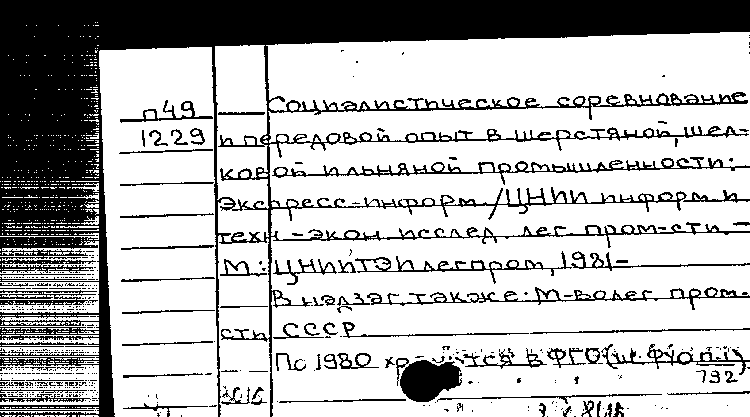 п49 Социалистическое соревнование
1229 и передовой опыт в шерстяной, шел=
ковой и льняной промышленности:
Экспресс-информ./ЦНИИ информ. и
техн.-экон. исслед. лег. пром-сти. –
М.: ЦНИИТЭИлегпром, 1981–
В надзаг. также: М-во лег. пром-
сти СССР.
По 1980 хранится в ФГО
792